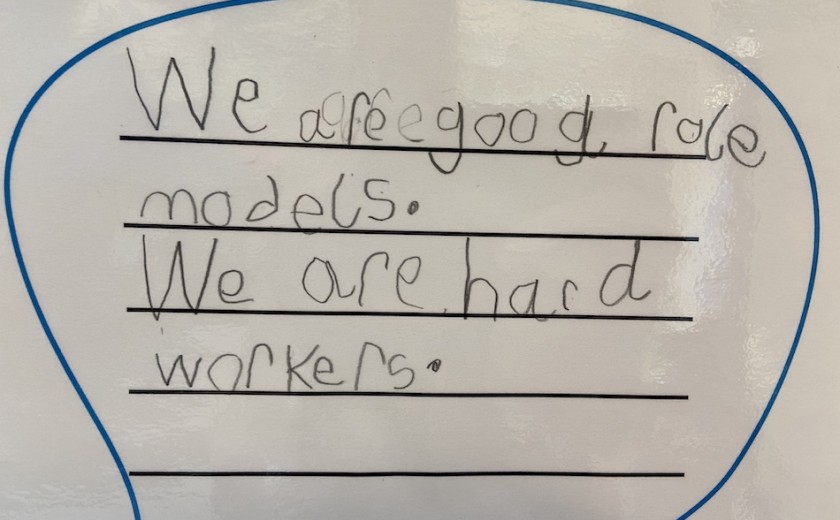 We are good role
models.
We are hard
workers.